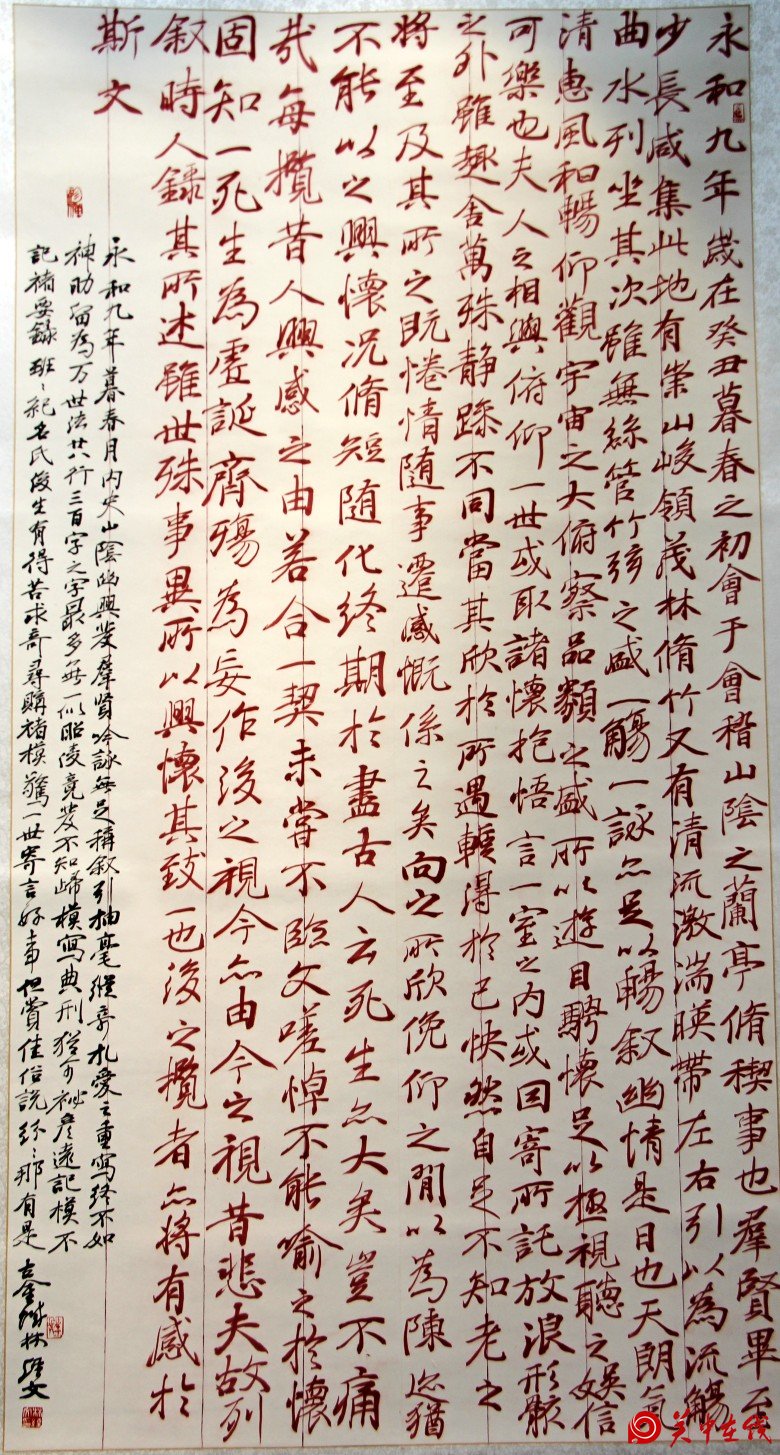 永和九年歲在癸丑暮春之初會于會稽山陰之蘭亭脩禊事也羣賢畢至
少長咸集此地有崇山峻領茂林脩竹又有清流激湍暎帶左右引以為流觴
曲水列坐其次雖無絲管竹弦之盛一觴一詠亦足以暢叙幽情是日也天朗氣
清惠風和暢仰觀宇宙之大俯察品類之盛所以遊目騁懷足以極視聽之娛信
可樂也夫人之相與俯仰一世或取諸懷抱悟言一室之內或因寄所託放浪形骸
之外雖趣舍萬殊静躁不同當其欣於所遇輒得於己快然自足不知老之
將至及其所之既惓情隨事遷感慨係之矣向之所欣俛仰之閒以為陳迹猶
不能以之興懷況脩短隨化終期於盡古人云死生亦大矣豈不痛
哉每攬昔人興感之由若合一契未嘗不臨文嗟悼不能喻之於懷
固知一死生為虛誕齊殤為妄作後之視今亦由今之視昔悲夫故列
叙時人錄其所述雖世殊事異所以興懷其致一也後之攬者亦將有感於
斯文
永和九年暮春月内史山陰幽興發羣賢吟詠無足稱叙引抽毫縱奇札愛之重寫終不如
神助留為万世法廿八行三百字之字最多無一似昭陵竟發不知歸模寫典刑猶可秘彥遠記模不
記褚要錄班〻紀名氏後生有得苦求奇尋購褚模驚一世寄言好事但賞佳俗說紛〻那有是
关中在线